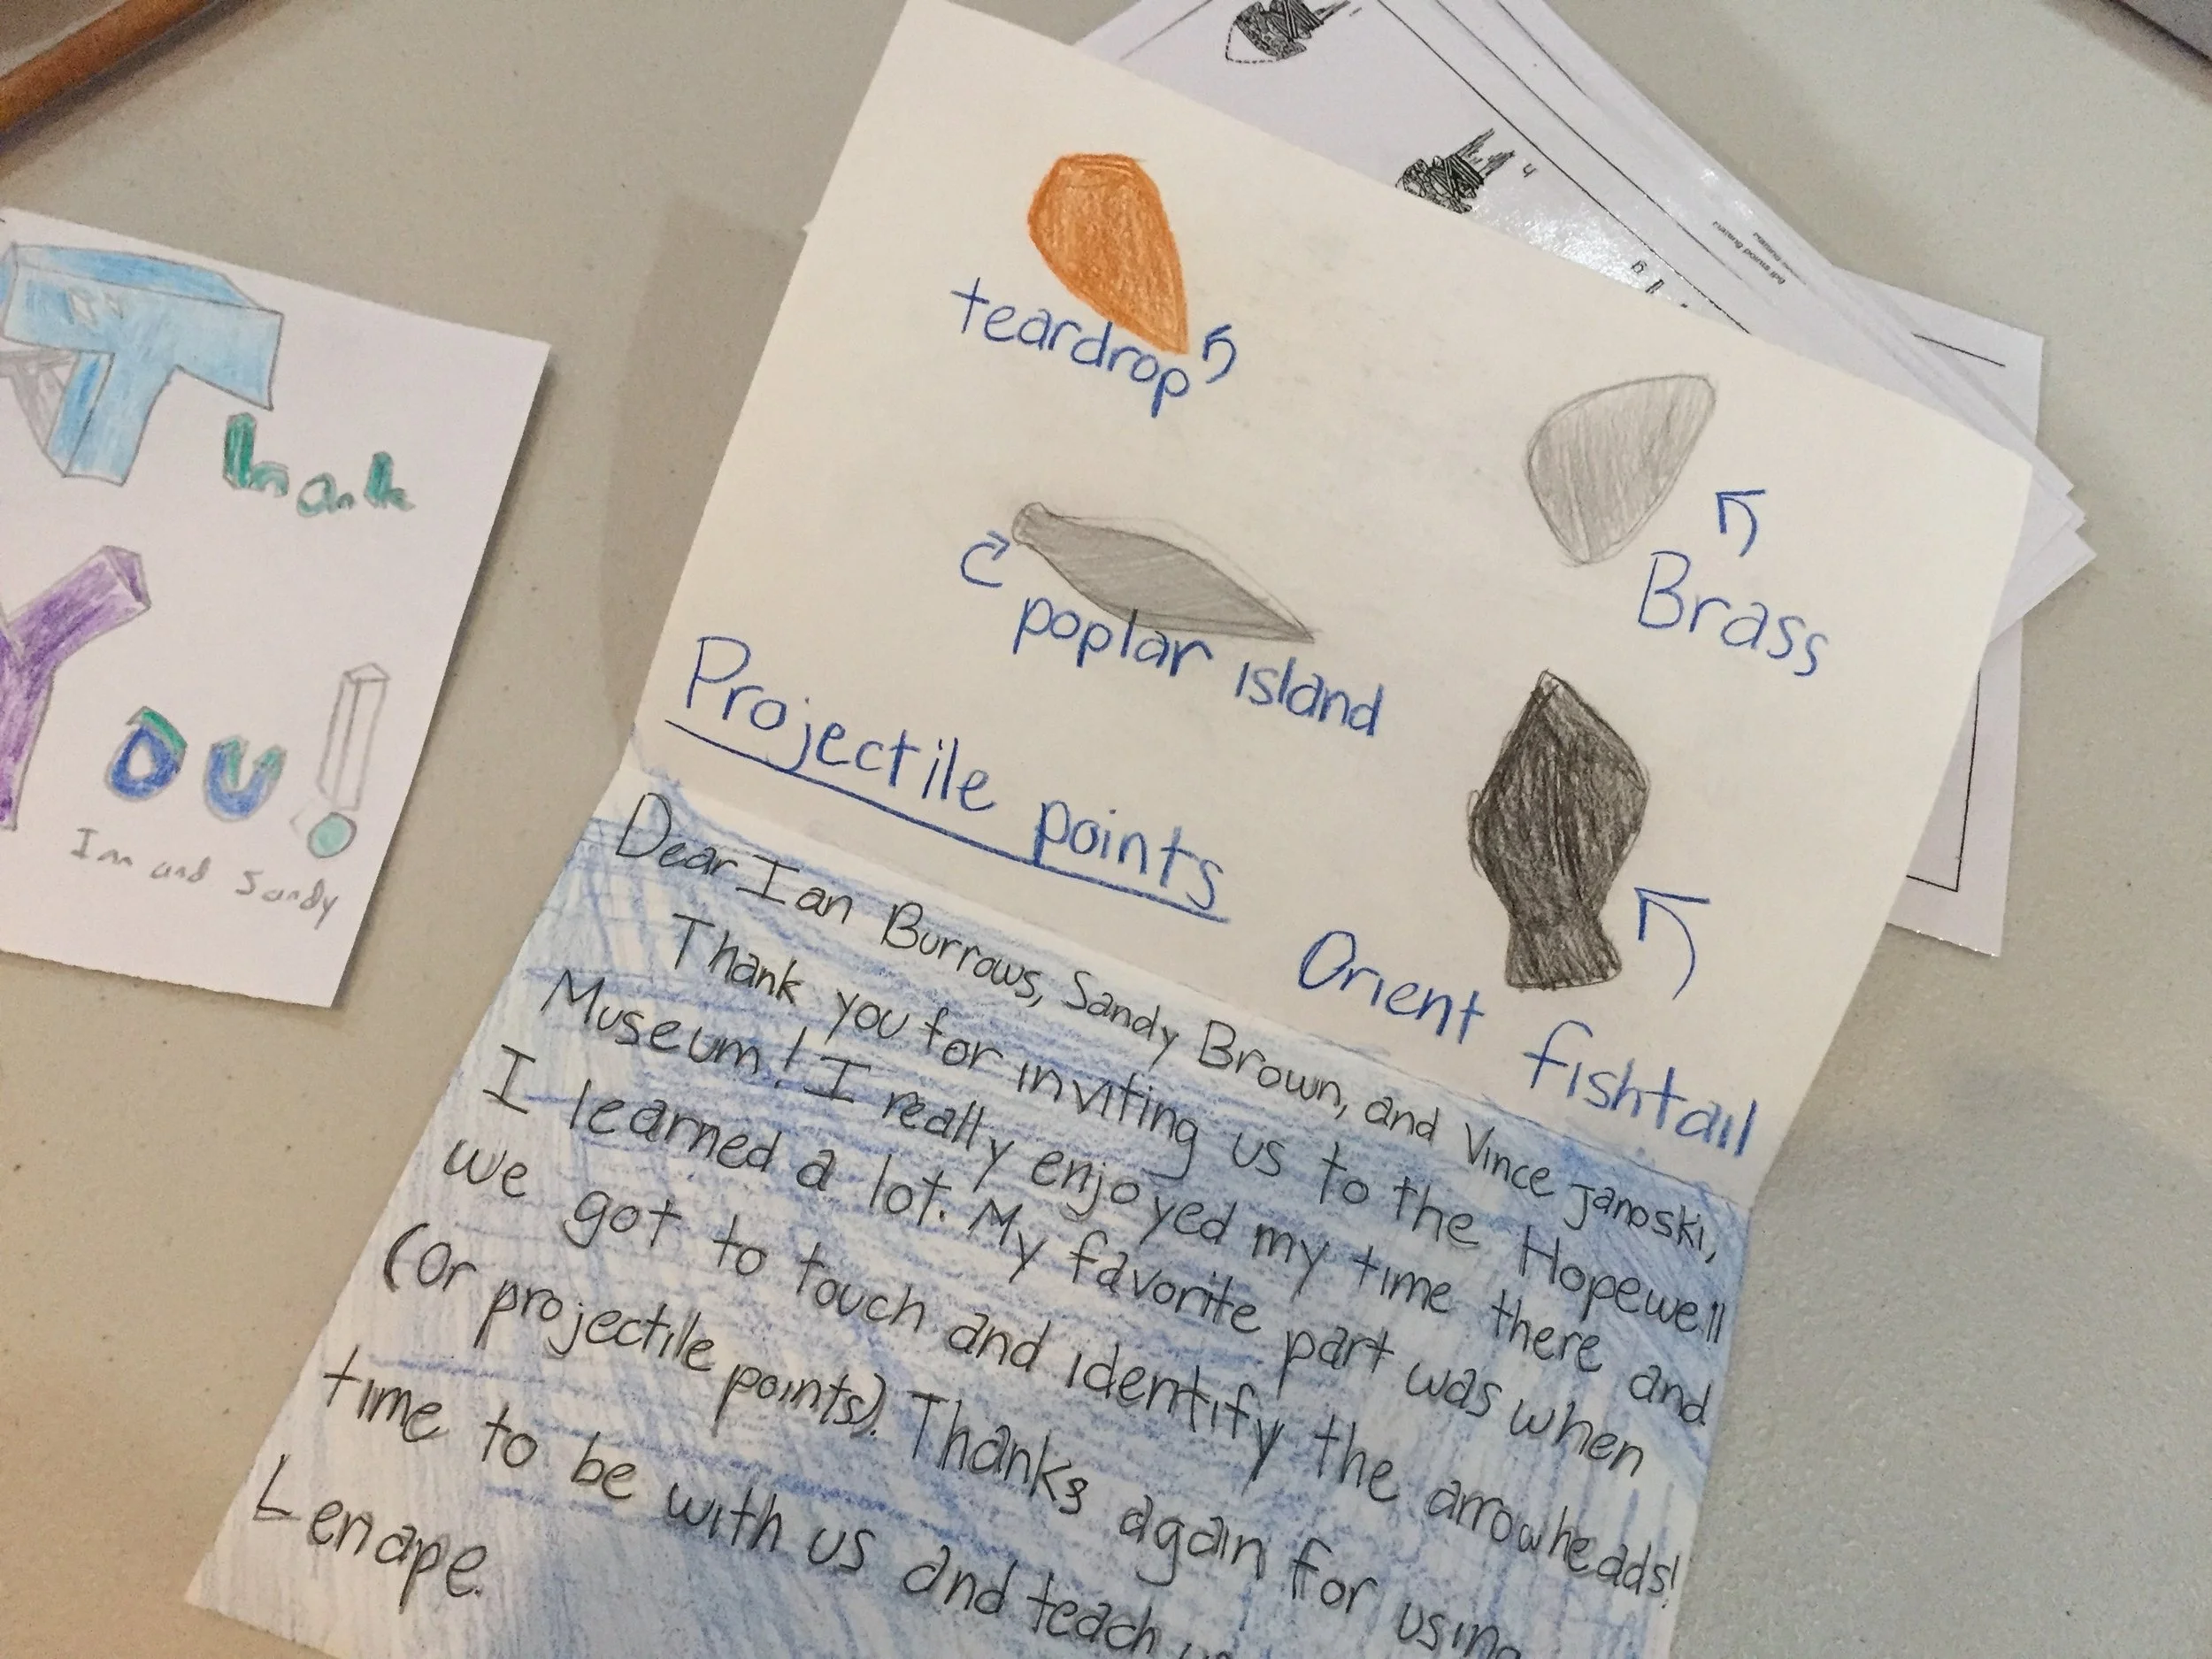 Thank
You!
Inn and Sandy
teardrop
Brass
poplar island
Projectile points
Orient fishtail
Dear Ian Burrows, Sandy Brown, and Vince Janoski,
Thank you for inviting us to the Hopewell
Museum! I really enjoyed my time there and
I learned a lot. My favorite part was when
we got to touch and identify the arrowheads!
(or projectile points). Thanks again for using
time to be with us and teach
Lenape.
4